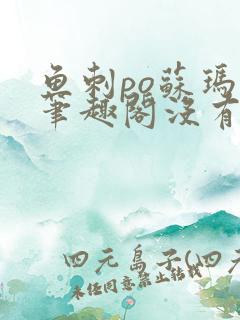 魚刺po蘇瑪
筆趣閣沒有
四元島子(四元
未經同意禁止轉載